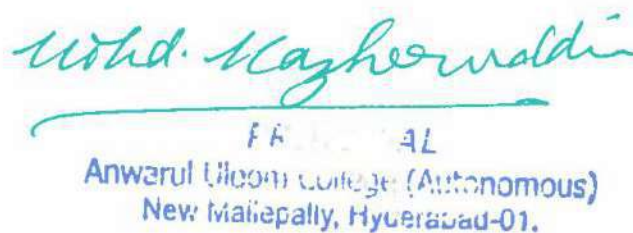 Mohd. Mazheruddin
Anwarul Uloom College (Autonomous)
New Mallepally, Hyderabad-01.